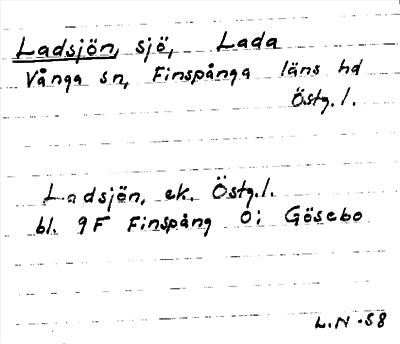 Ladsjön, sjö, Lada
Vånga sn, Finspånga läns hd
Östg.l.
Ladsjön, ek. Östg.l.
bl. 9F Finspång 0i Gösebo
L.N -58